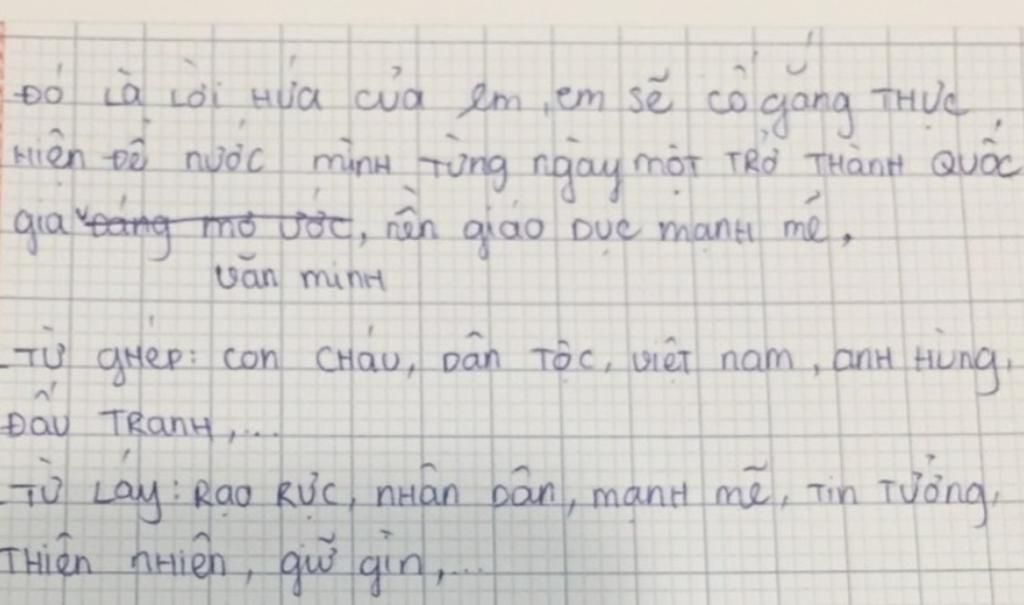 Đó là lời hứa của em, em sẽ cố gắng thực
hiện để nước mình từng ngày một trở thành quốc
gia đáng mơ ước, nền giáo dục mạnh mẽ,
văn minh
- Từ ghép: con cháu, dân tộc, việt nam, anh hùng,
Đấu tranh,...
- Từ láy: Rạo rực, nhân dân, mạnh mẽ, tin tưởng,
thiên nhiên, giữ gìn,...